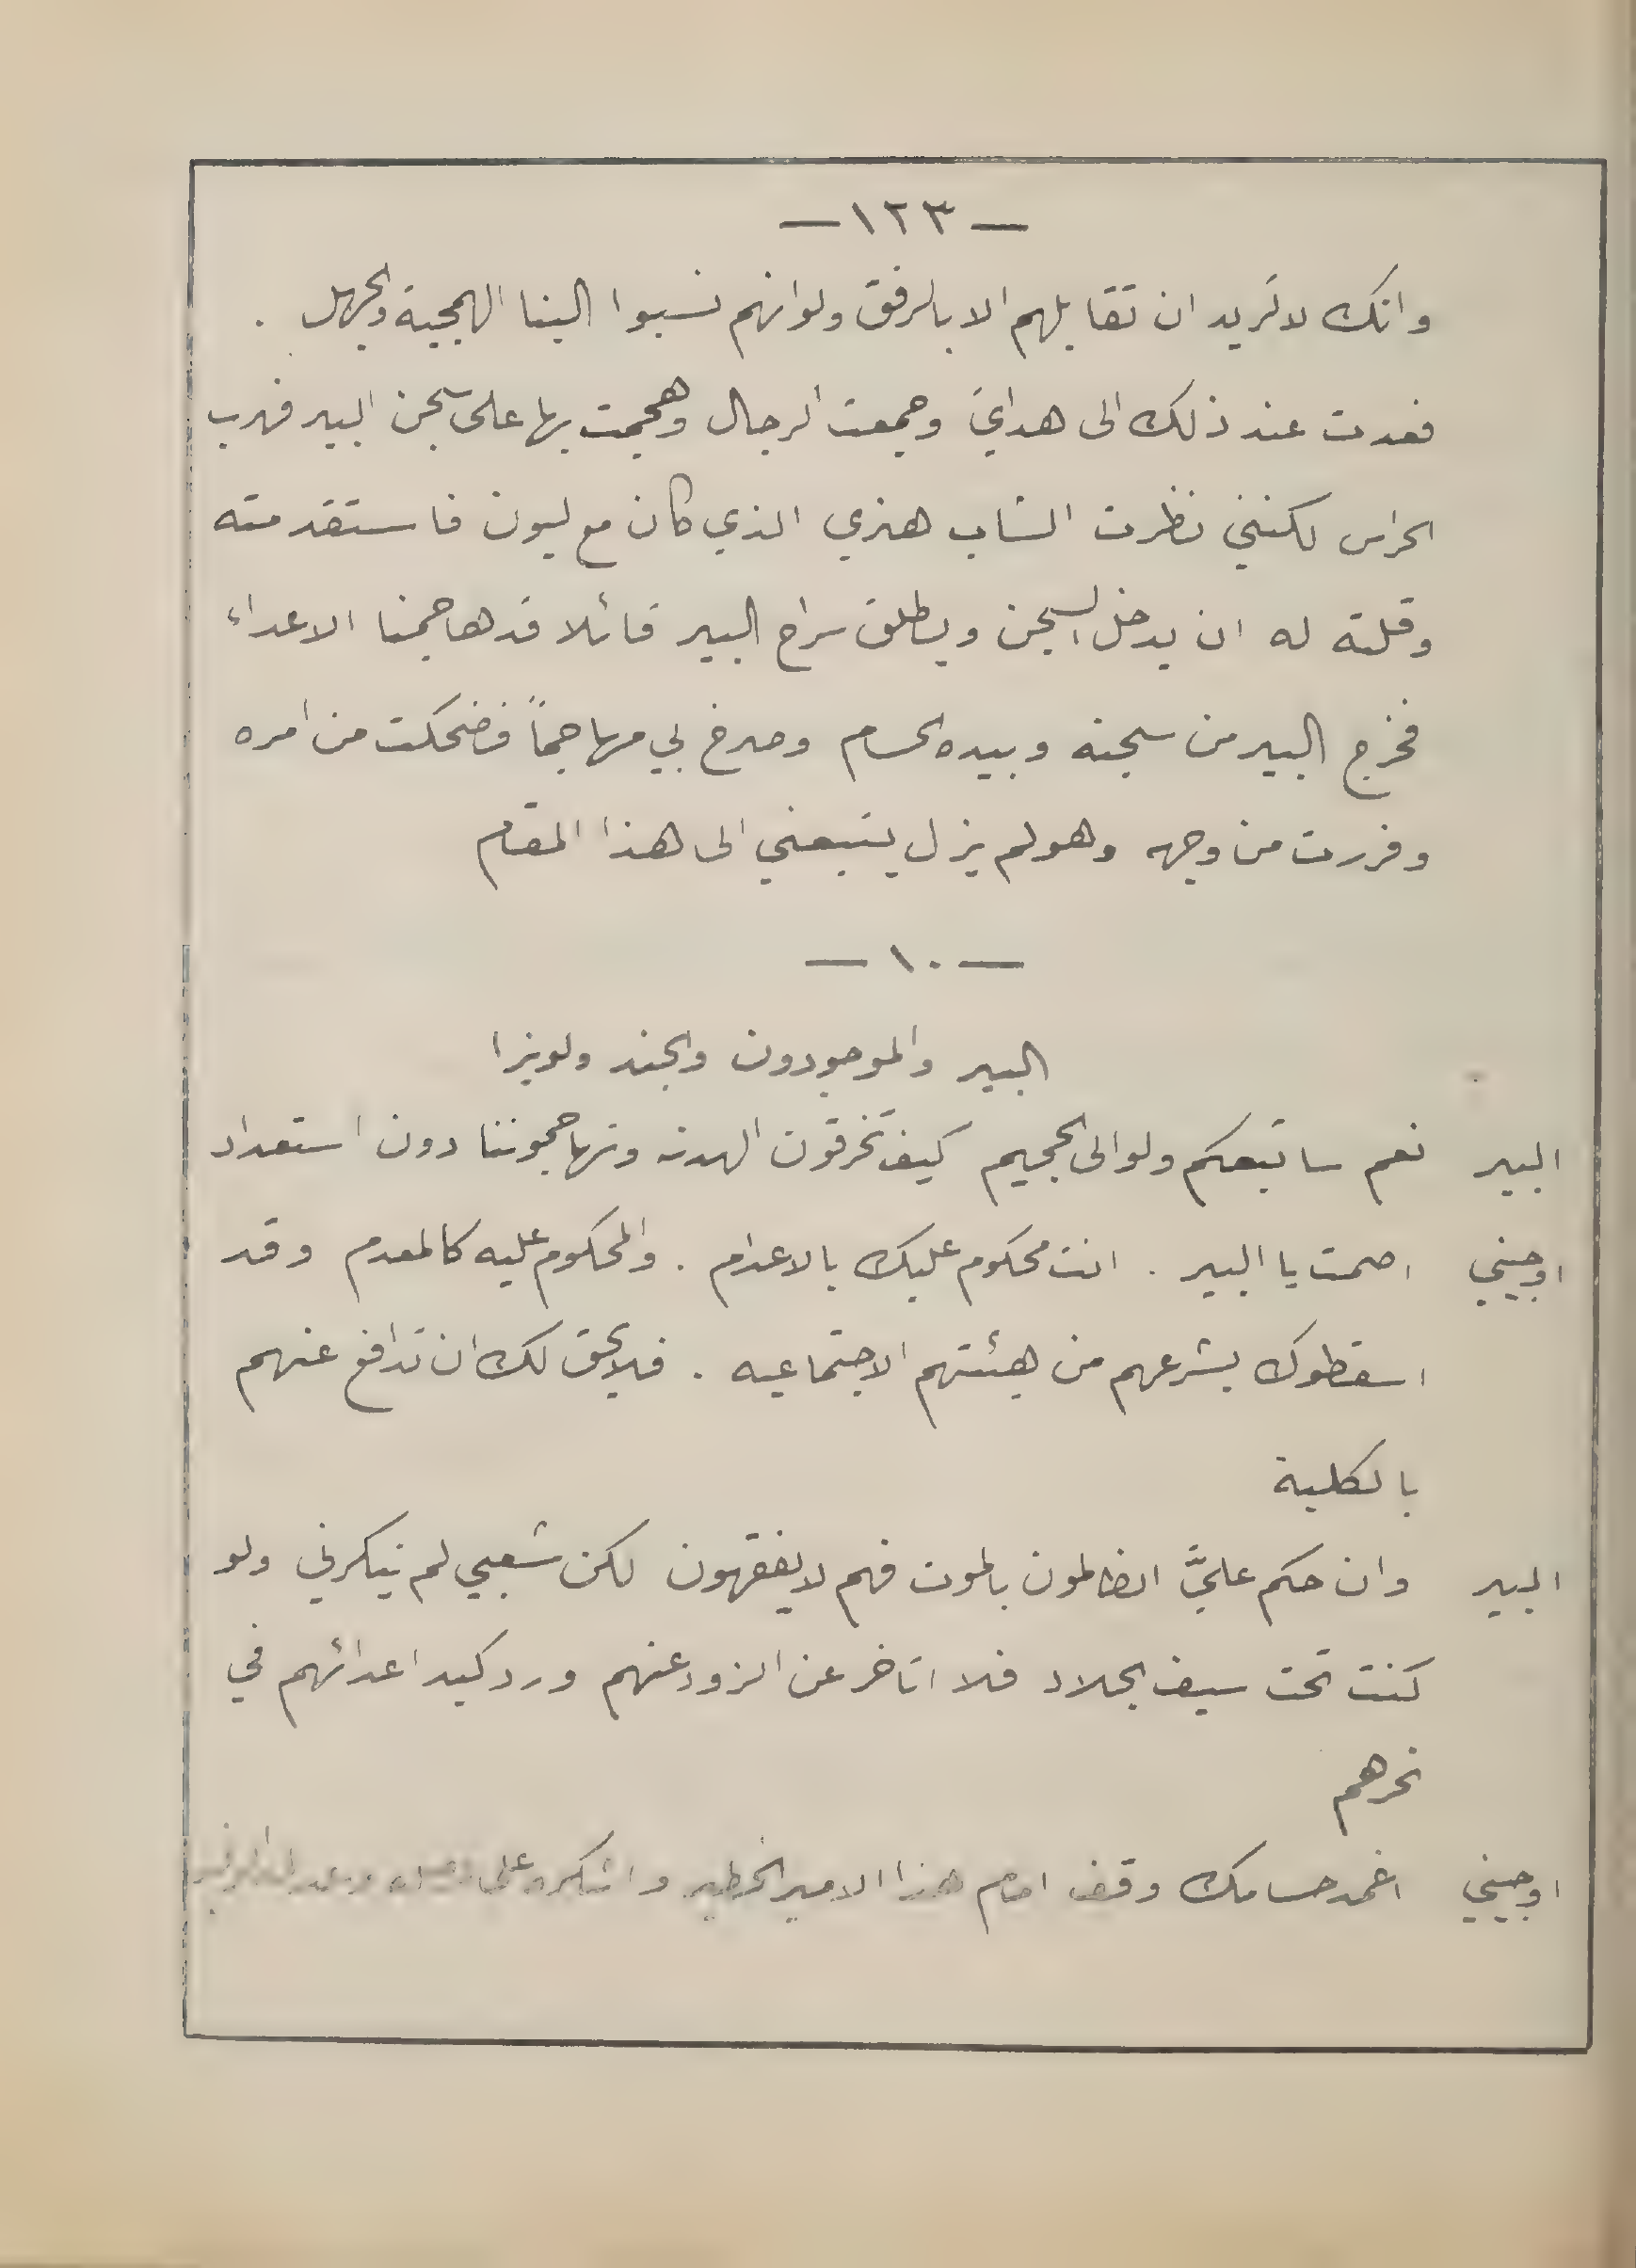 — ١٢٣ —
وانك لا تريد ان تقابلهم الا بالرفق ولو انهم نسبوا الينا الهمجية والجهل .
فعدت عند ذلك الى هداي وجمعت الرجال وهجمت بها على سجن البير فهرب
الحراس لكنني نظرت الشاب هنري الذي كان مع ليون فاستقدمته
وقلته له ان يدخل السجن ويطلق سراح البير قائلا قد هاجمنا الاعداء
فخرج البير من سجنه وبيده الحسام وصرخ بي مهاجماً فضحكت من امره
وفررت من وجهه وهو لم يزل يتبعني الى هذا المقام
— ١٠ —
البير والموجودون والجند ولويزا
البير نعم ساتبعكم ولو الى الجحيم كيف تخرقون الهدنه وتهاجموننا دون استعداد
اوجيني اصمت يا البير . انت محكوم عليك بالاعدام . والمحكوم عليه كالمعدم وقد
اسقطوك بشرعهم من هيئتهم الاجتماعيه . فلا يحق لك ان تدافع عنهم
بالكلية
البير وان حكم عليَّ الظالمون بالموت فهم لا يفقهون لكن شعبي لم ينكرني ولو
كنت تحت سيف الجلاد فلا اتاخر عن الزود عنهم ورد كيد اعدائهم في
نحرهم
اوجيني اغمد حسامك وقف امام هذا الامير الخطير واشكره على